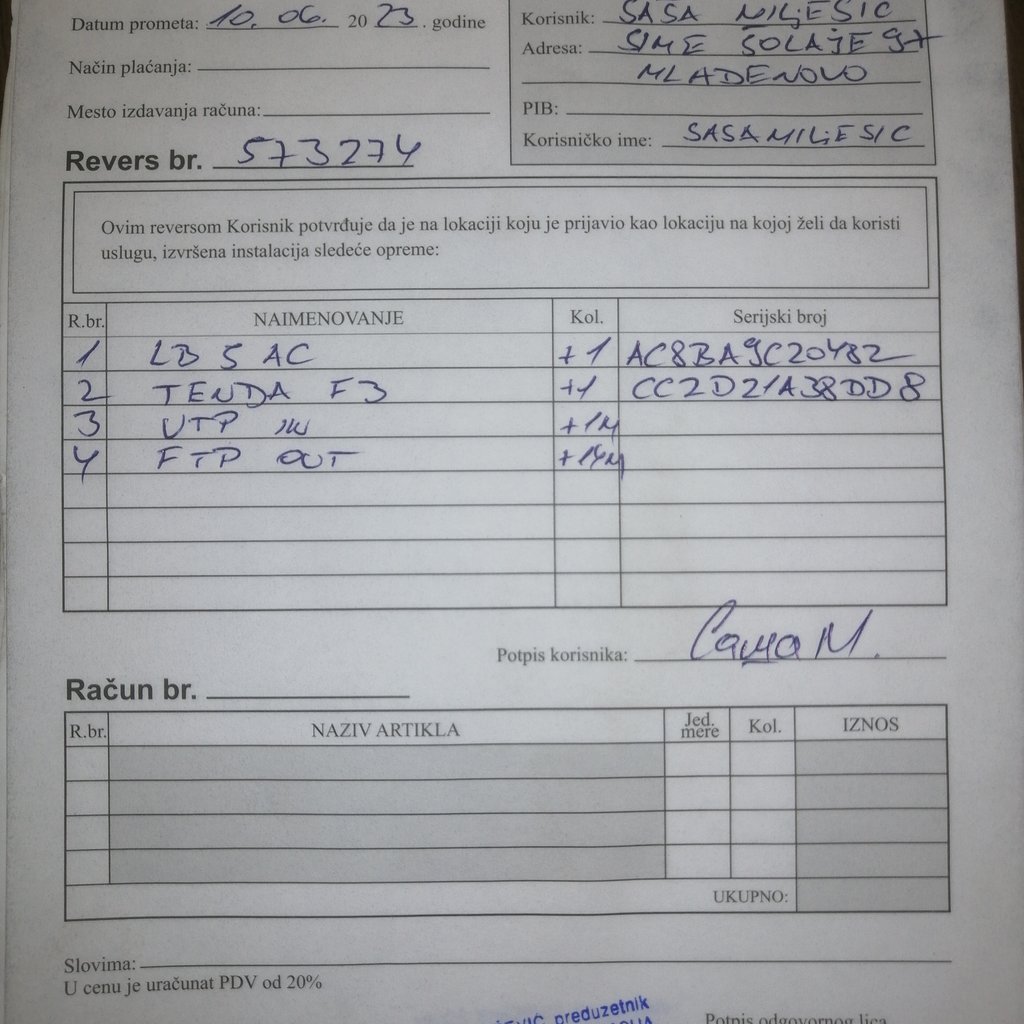 Datum prometa: 10. 06. 2023. godine
Način plaćanja:
Mesto izdavanja računa:
Revers br. 573274
Korisnik: SAŠA MILJEŠIC
Adresa: SIME ŠOLAJE
MLADENOVO
PIB:
Korisničko ime: SASAMILJESIC
Ovim reversom Korisnik potvrđuje da je na lokaciji koju je prijavio kao lokaciju na kojoj želi da koristi
uslugu, izvršena instalacija sledeće opreme:
R.br. NAIMENOVANJE Kol. Serijski broj
1 LB 5 AC +1 AC8BA9C20482
2 TENDA F3 +1 CC2D21A38DD8
3 UTP IN +1M
4 FTP OUT +14M
Potpis korisnika: Саша М.
Račun br.
R.br. NAZIV ARTIKLA Jed. mere Kol. IZNOS
UKUPNO:
Slovima:
U cenu je uračunat PDV od 20%
preduzetnik
Potpis odgovornog lica